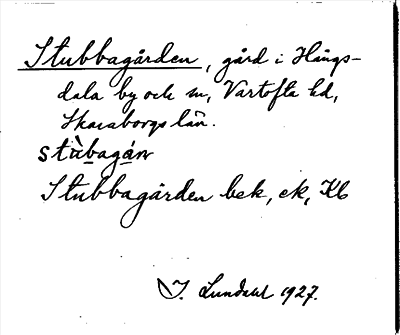 Stubbagården, gård i Hångs-
dala by och sn, Vartofta hd,
Skaraborgs län.
stùbagán
Stubbagården bek, ek, Kb
J. Lundahl 1927.